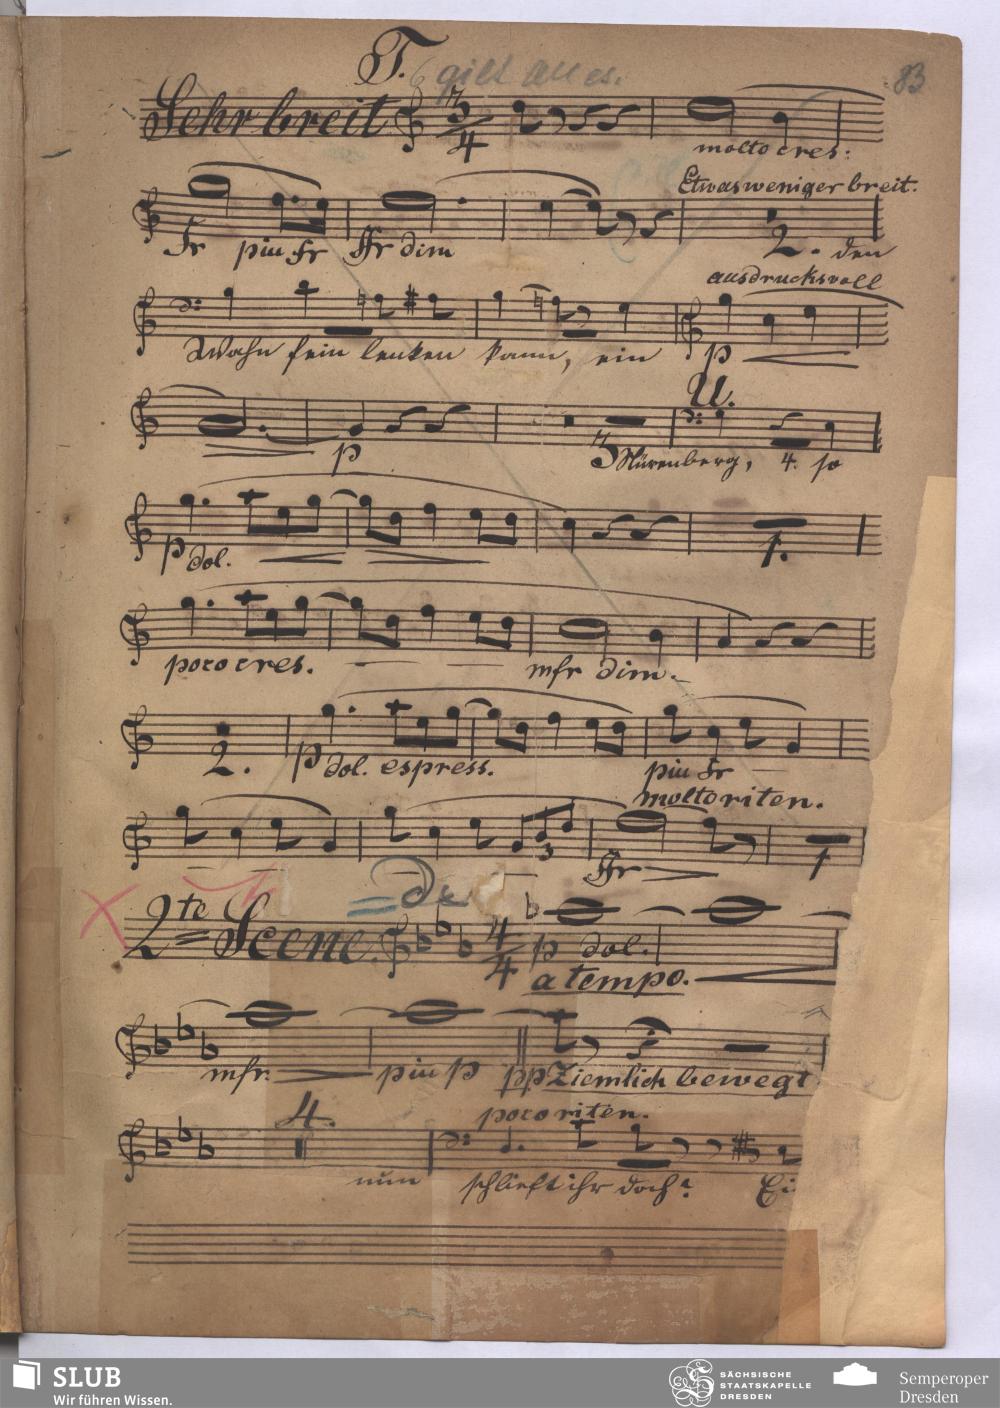 T. gilt alles. 83
Sehr breit 3/4
molto cres:
Etwas weniger breit.
fr piu fr ffr dim 2. den
ausdrucksvoll
Wahn fein lenken kann, ein p
U.
p 3 Nürenberg, 4. so
p dol. 1.
poco cres. mfr dim.
2. p dol. espress. piu fr
molto riten.
3 ffr 1
2te Scene. 4/4 p dol.
a tempo.
mfr. piu p pp Ziemlich bewegt
4. poco riten.
nun schlieft ihr doch?
SLUB
Wir führen Wissen.
SÄCHSISCHE
STAATSKAPELLE
DRESDEN
Semperoper
Dresden